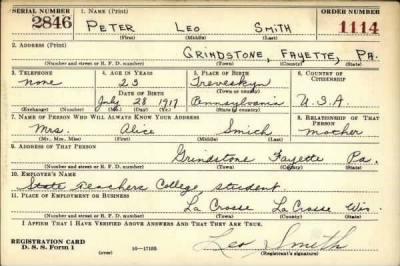 SERIAL NUMBER 1. NAME (Print) ORDER NUMBER
2846 PETER LEO SMITH 1114
(First) (Middle) (Last)
2. ADDRESS (Print)
GRINDSTONE, FAYETTE, PA.
(Number and street or R. F. D. number) (Town) (County) (State)
3. TELEPHONE 4. AGE IN YEARS 5. PLACE OF BIRTH 6. COUNTRY OF CITIZENSHIP
none 23 Treveskyn
DATE OF BIRTH (Town or county)
July 28 1917 Pennsylvania U.S.A.
(Exchange) (Number) (Mo.) (Day) (Yr.) (State or country)
7. NAME OF PERSON WHO WILL ALWAYS KNOW YOUR ADDRESS 8. RELATIONSHIP OF THAT PERSON
Mrs. Alice Smich mother
(Mr., Mrs., Miss) (First) (Middle) (Last)
9. ADDRESS OF THAT PERSON
Grindstone Fayette Pa.
(Number and street or R. F. D. number) (Town) (County) (State)
10. EMPLOYER'S NAME
State Teachers College, student
11. PLACE OF EMPLOYMENT OR BUSINESS
La Crosse La Crosse Wis.
(Number and street or R. F. D. number) (Town) (County) (State)
I AFFIRM THAT I HAVE VERIFIED ABOVE ANSWERS AND THAT THEY ARE TRUE.
REGISTRATION CARD
D. S. S. Form 1 (over) 16—17105 Leo Smith
(Registrant's signature)